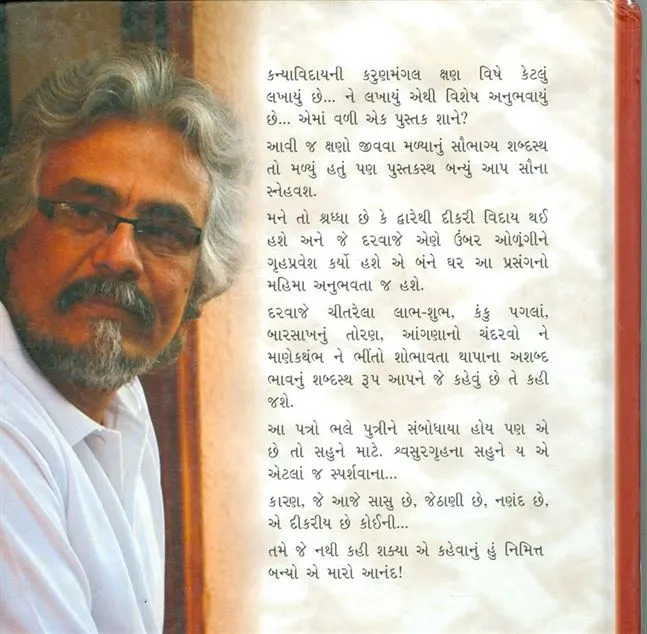 કન્યાવિદાયની કરુણમંગલ ક્ષણ વિષે કેટલું
લખાયું છે... ને લખાયું એથી વિશેષ અનુભવાયું
છે... એમાં વળી એક પુસ્તક શાને?
આવી જ ક્ષણો જીવવા મળ્યાનું સૌભાગ્ય શબ્દસ્થ
તો મળ્યું હતું પણ પુસ્તકસ્થ બન્યું આપ સૌના
સ્નેહવશ.
મને તો શ્રધ્ધા છે કે દ્વારેથી દીકરી વિદાય થઈ
હશે અને જે દરવાજે એણે ઉંબર ઓળંગીને
ગૃહપ્રવેશ કર્યો હશે એ બંને ઘર આ પ્રસંગનો
મહિમા અનુભવતા જ હશે.
દરવાજે ચીતરેલા લાભ-શુભ, કંકુ પગલાં,
બારસાખનું તોરણ, આંગણાનો ચંદરવો ને
માણેકથંભ ને ભીંતો શોભાવતા થાપાના અશબ્દ
ભાવનું શબ્દસ્થ રૂપ આપને જે કહેવું છે તે કહી
જશે.
આ પત્રો ભલે પુત્રીને સંબોધાયા હોય પણ એ
છે તો સહુને માટે. શ્વસુરગૃહના સહુને ય એ
એટલાં જ સ્પર્શવાના...
કારણ, જે આજે સાસુ છે, જેઠાણી છે, નણંદ છે,
એ દીકરીય છે કોઈની...
તમે જે નથી કહી શક્યા એ કહેવાનું હું નિમિત્ત
બન્યો એ મારો આનંદ!